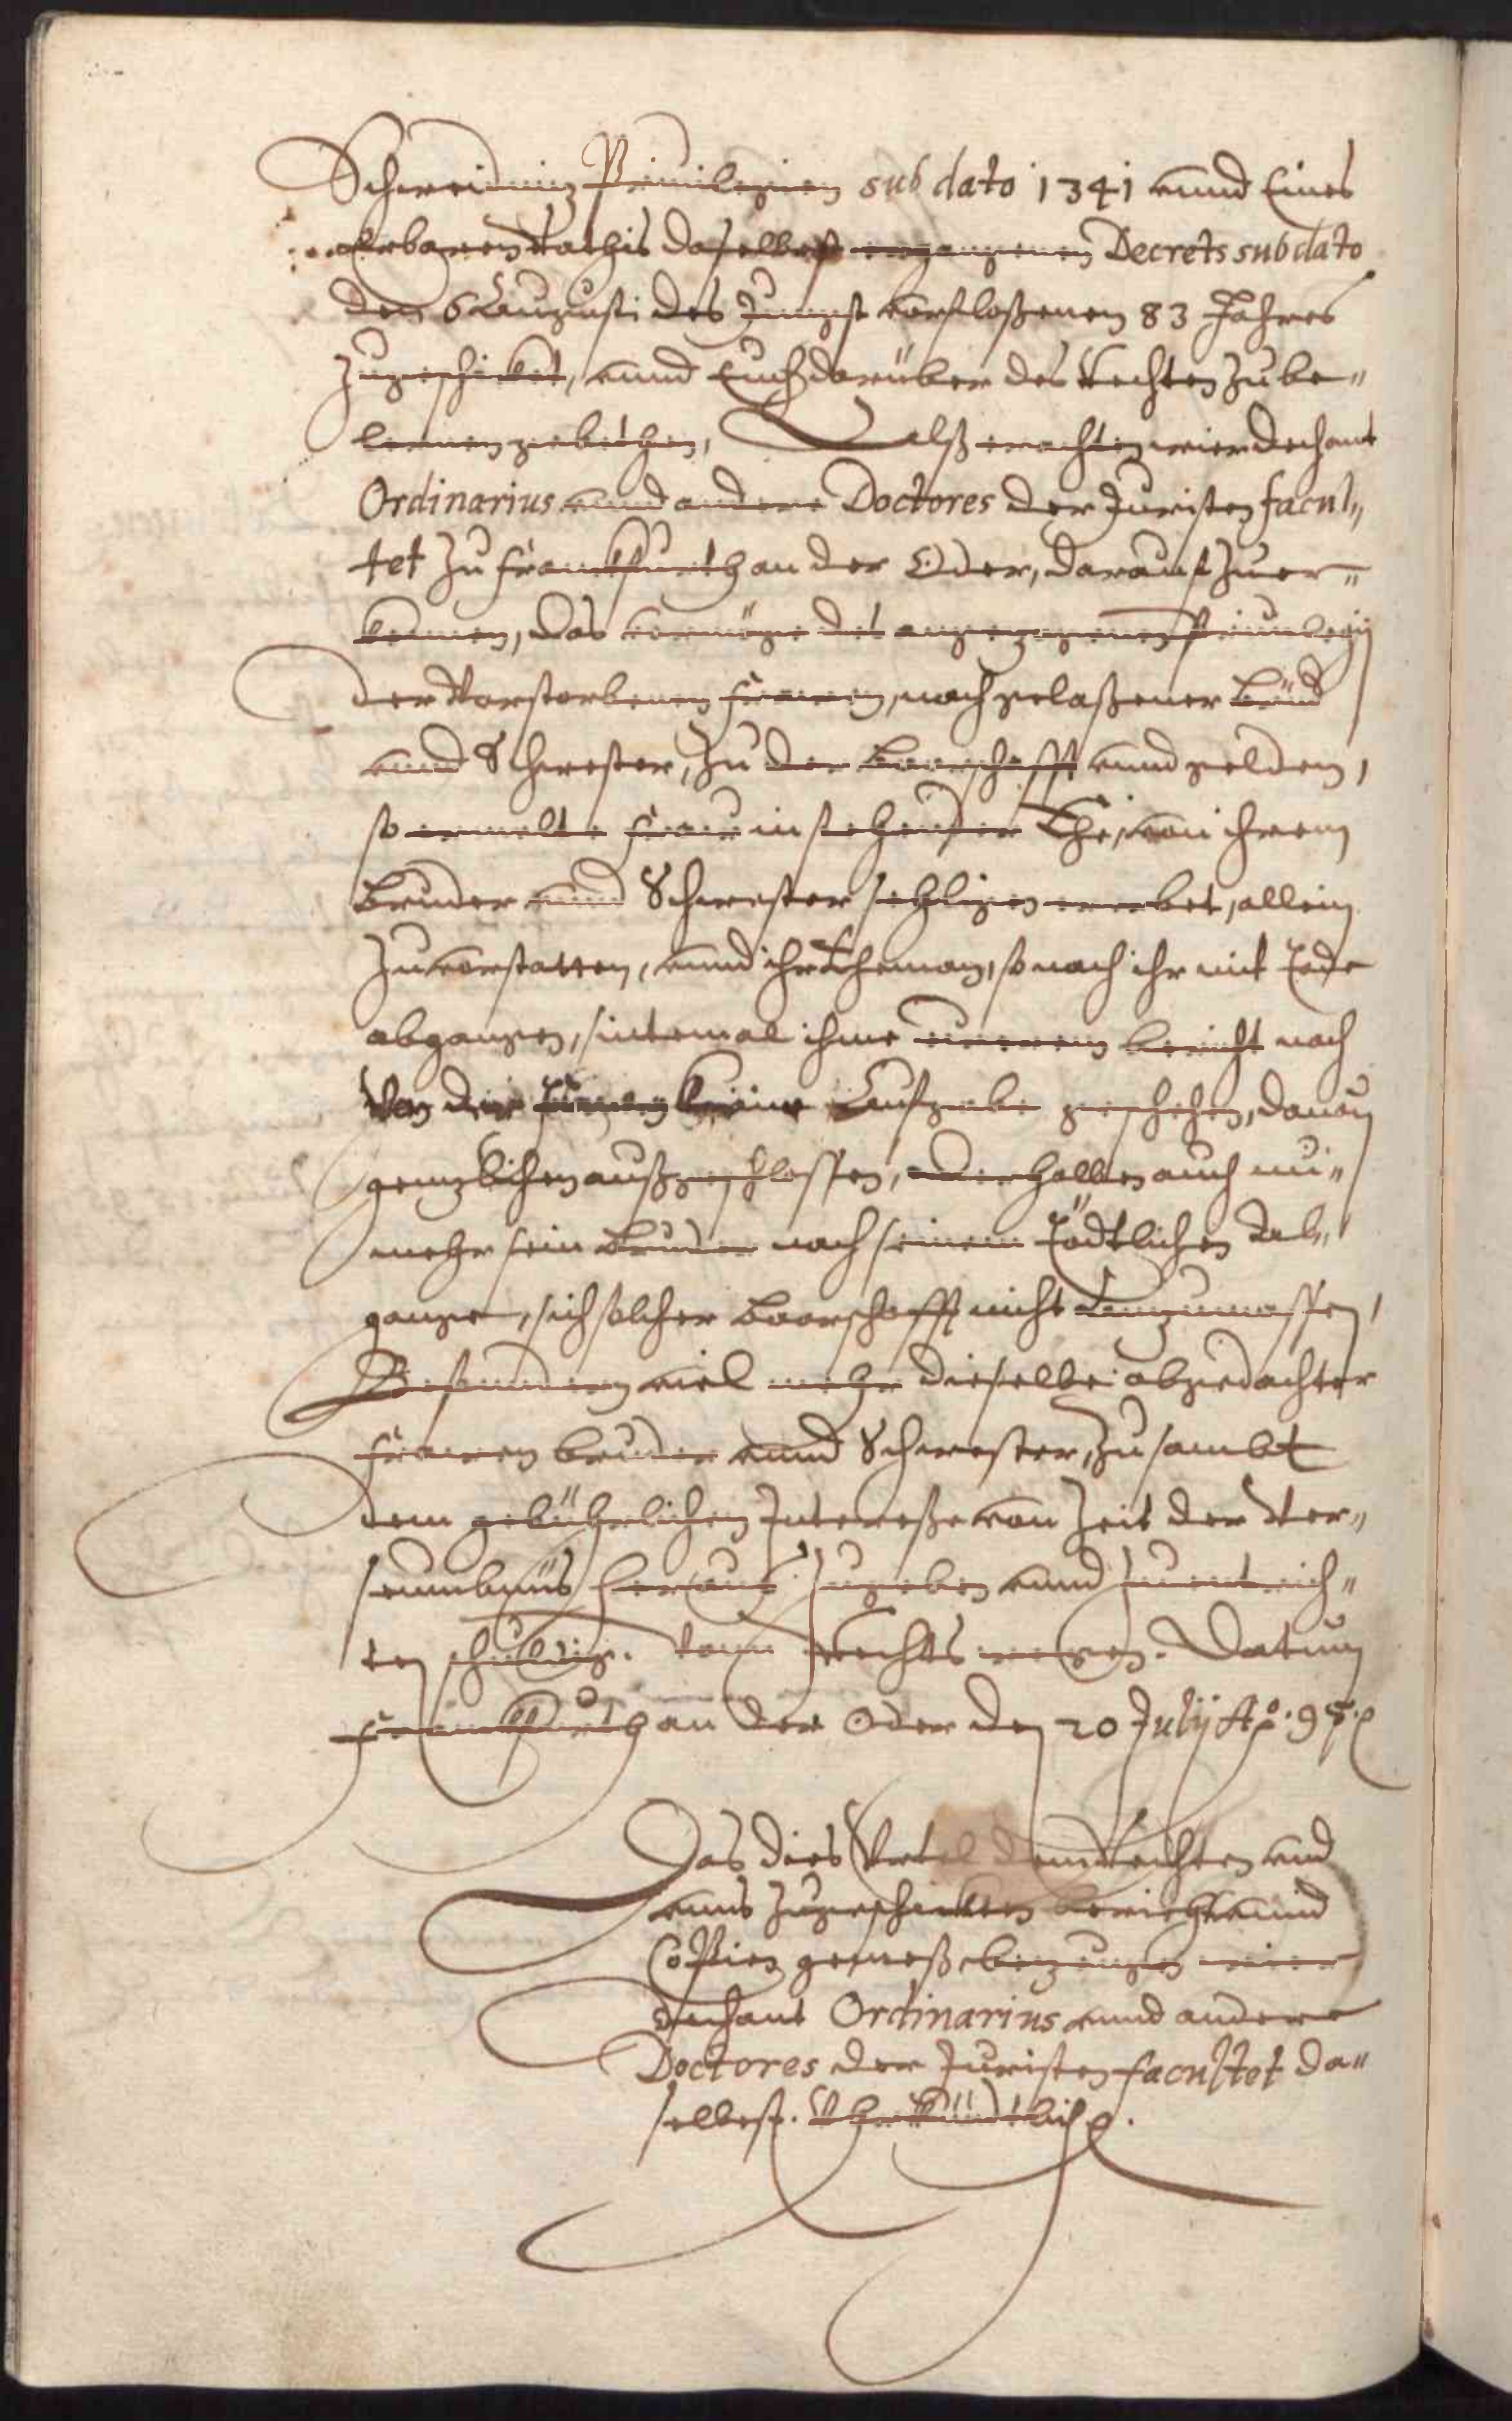 Schweidnitz Priuilegien sub dato 1341 vnnd Eines
Erbaren Rathis daselbest ergangenen Decrets sub dato
den 6 Augusti des Jungst vorfloßenen 83 Jahres
zugeschicket, vnnd Euch darüber des Rechten zu be„
lernen gebethen, Alß erachten wier dechant
Ordinarius vnnd andere Doctores der Juristen facul„
tet zu Franckfurth an der Oder, darauß zu er„
kennen, das vermöge des angezogenen Priuilegij
der Vorstorbenen Frauen, nachgelaßener Brud
vnnd Schwester, zu der Baarschafft vnnd gelden,
so ermelte Frau in stehender Ehe, von ihrem
Bruder vnnd Schwester sehligen ererbet, allein
zu vorstatten, vnnd ihr Eheman, so nach ihr mit Tode
abgangen, sintemal ihme eurem bericht nach
Von der Frauen keine Aufgabe geschehen, dauon
gentzlichen außgeschlossen, derhalben auch nu„
mehr sein Bruder nach seinem Tödtlichen Ab„
gange, sich solcher Baarschafft nicht anzumassen,
Besondern viel mehr dieselbe obgedachter
Frauen bruder vnnd Schwester, zu sambt
dem gebührlichen Intereße von Zeit der Ver„
seumbnüs heraus zugeben vnnd zuentrich„
ten schuldig. Vonn Rechts wegen. Datum
Franckfurth an der Oder den 20 Julij Ao. 95.
Das dies Urtel dem Rechten vnd
vnns zugeschickten bericht vnnd
Copien gemeß, bezeugen wier
dechant Ordinarius vnnd andere
Doctores der Juristen facultet da„
selbest. Uhrkundtlich.